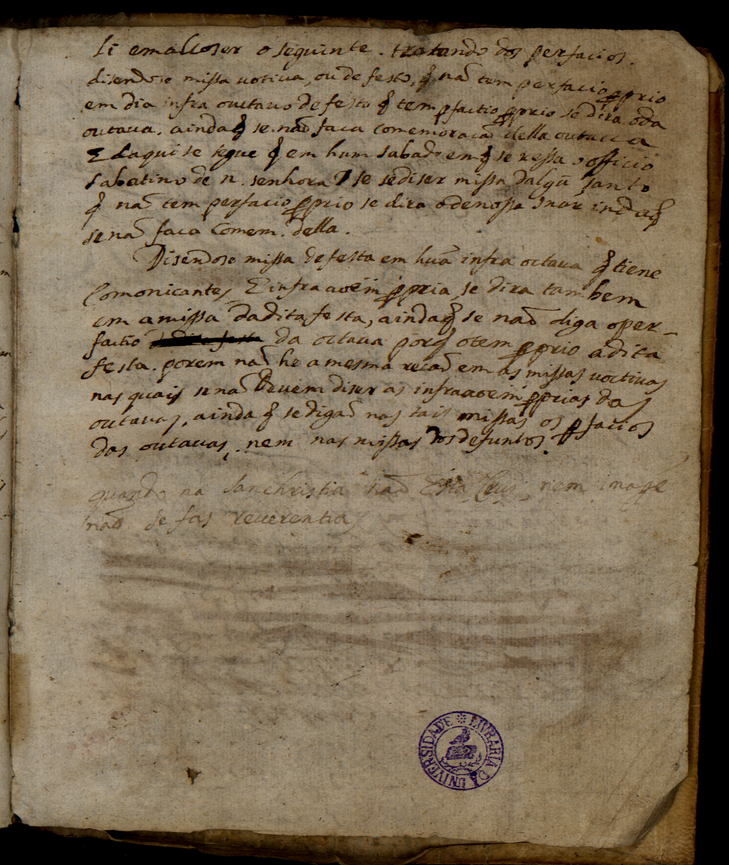 li em alcoser o seguinte. tratando dos perfacios.
disendose missa votiva, ou de festo, q̃ naõ tem perfacio ꝓprio
em dia infra outavo de festo q̃ tem pfactio ꝓprio se dira o da
outava, ainda q̃ se naõ faca comemoracaõ della outava
E daqui se segue q̃ em hum sabado em q̃ se ressa o officio
sabatino de n. senhora, se se diser missa Dalgũ santo
q̃ naõ tem perfacio ꝓprio se dira o de nossa snor
se naõ faca comem. della.
Disendose missa de festa em huã infra octava q̃ tiene
Comonicantes, E infra ꝓpria, se dira tambem
em a missa da dita festa, ainda q̃ se naõ diga o per-
factio da octava porq̃ o tem ꝓprio a dita
festa. porem naõ he a mesma recaõ em as missas voctivas
nas quais se naõ devem diser as infra ꝓprias das
outavas, ainda q̃ se digaõ nas tais missas os pfacios
das outavas, nem nas missas dos defuntos.
quando na Sanchristia naõ Esta Cruz, nem image
naõ se fas reverentia
LIVRARIA DA UNIVERSIDADE